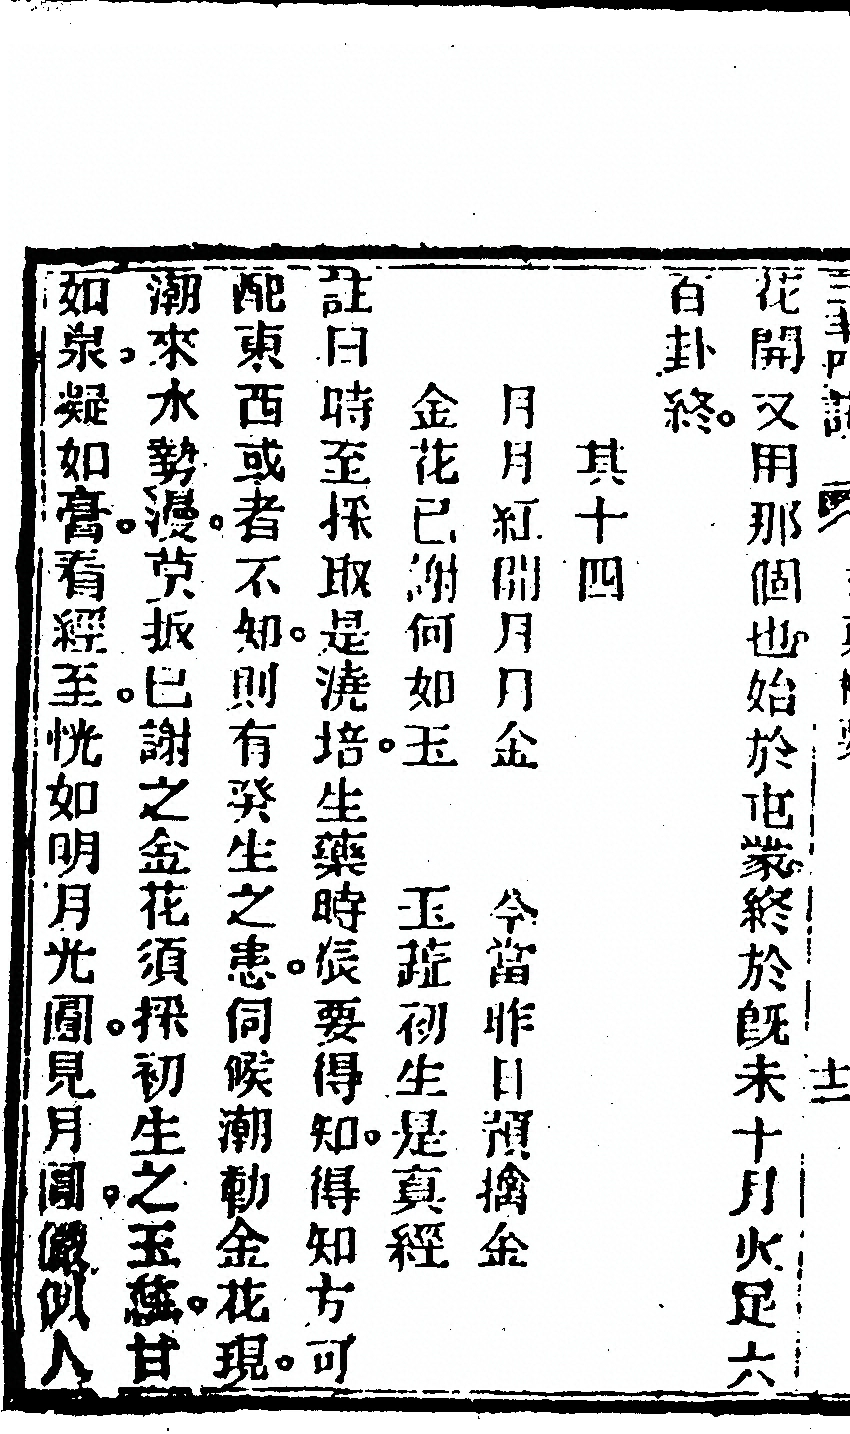 花開又用那個也始於屯蒙終於既未十月火足六
百卦終。
其十四
月月紅開月月金　今當昨日預擒金
金花已謝何如玉　玉蕋初生是真經
註曰時至採取是澆培。生藥時辰要得知。得知方可
配東西或者不知。則有癸生之患。伺候潮動金花現。
潮來水勢漫。莫扳已謝之金花須採初生之玉蕋。甘
如泉。凝如膏。看經至。恍如明月光圓。見月圓。儼似人